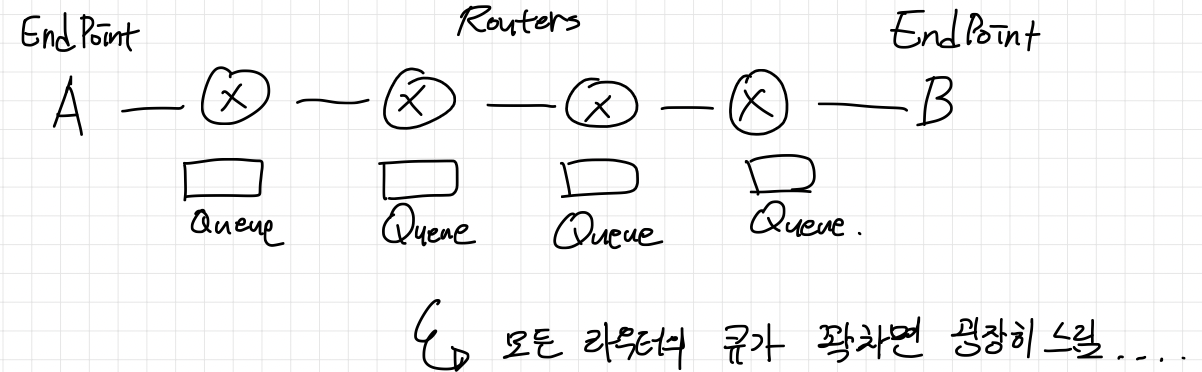 EndPoint Routers EndPoint
A X X X X B
Queue Queue Queue Queue.
모든 라우터의 큐가 꽉차면 굉장히 느릴....